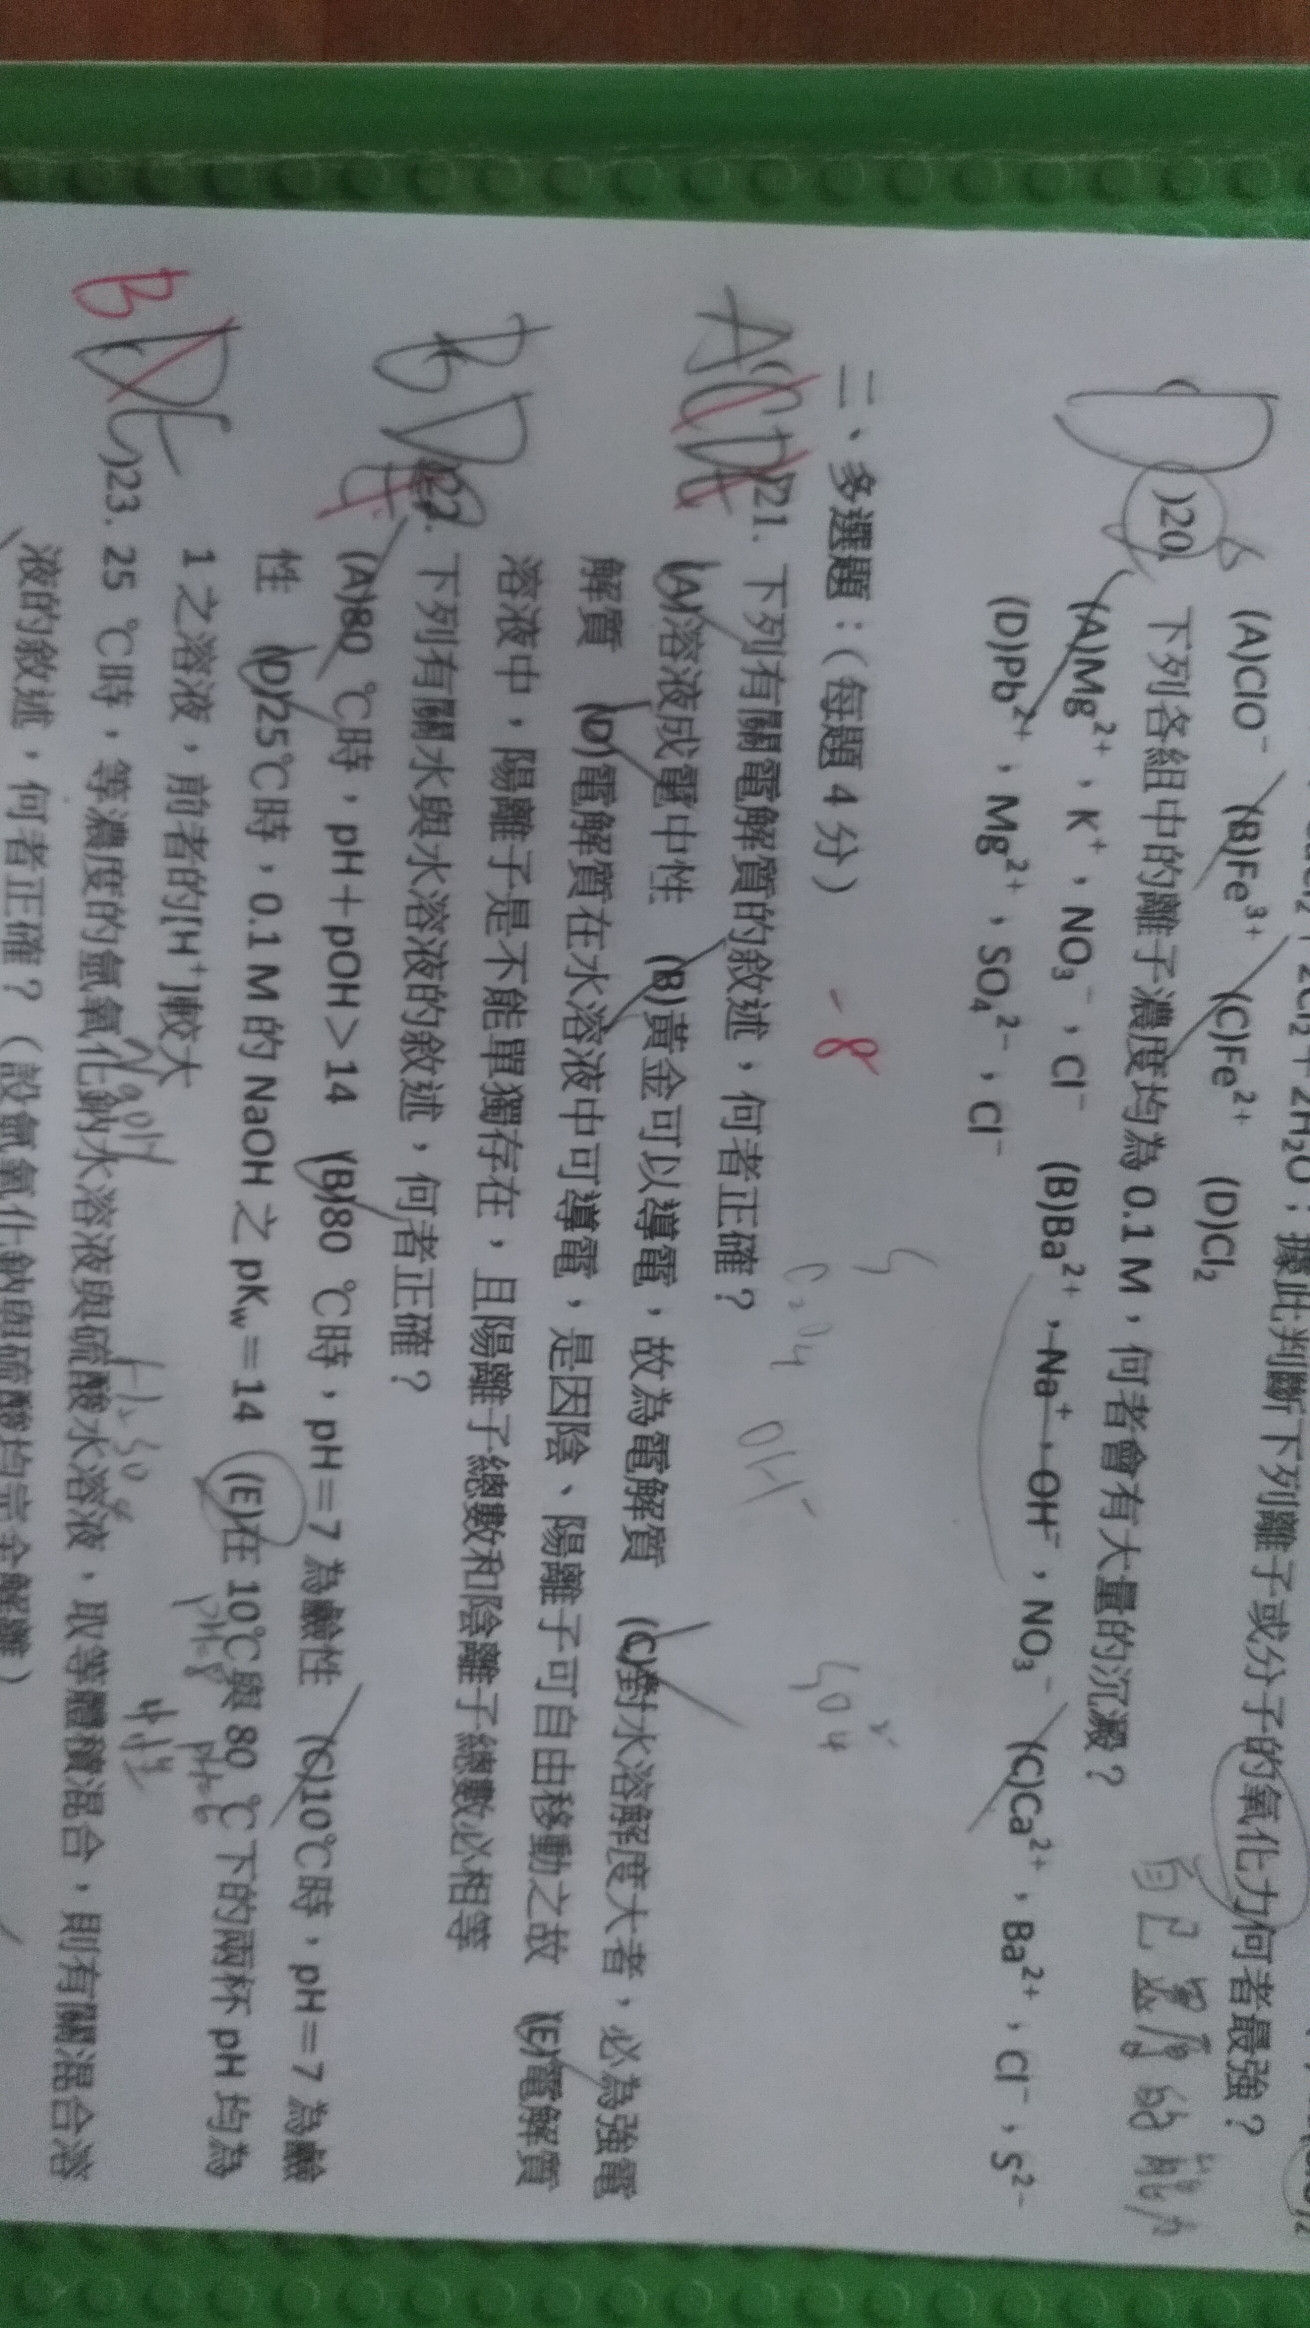 (A)ClO⁻ (B)Fe³⁺ (C)Fe²⁺ (D)Cl₂
2H₂O；據此判斷下列離子或分子的氧化力何者最強？
D )20. 下列各組中的離子濃度均為 0.1 M，何者會有大量的沉澱？
自己
(A)Mg²⁺，K⁺，NO₃⁻，Cl⁻ (B)Ba²⁺，Na⁺，OH⁻，NO₃⁻ (C)Ca²⁺，Ba²⁺，Cl⁻，S²⁻
(D)Pb²⁺，Mg²⁺，SO₄²⁻，Cl⁻
二、多選題：(每題 4 分) -8
C₂O₄ OH⁻ SO₄²⁻
ACDE )21. 下列有關電解質的敘述，何者正確？
(A)溶液成電中性 (B)黃金可以導電，故為電解質 (C)對水溶解度大者，必為強電
解質 (D)電解質在水溶液中可導電，是因陰、陽離子可自由移動之故 (E)電解質
溶液中，陽離子是不能單獨存在，且陽離子總數和陰離子總數必相等
BDE 22. 下列有關水與水溶液的敘述，何者正確？
(A)80 ℃時，pH＋pOH＞14 (B)80 ℃時，pH＝7 為鹼性 (C)10℃時，pH＝7 為鹼
性 (D)25℃時，0.1 M 的 NaOH 之 pKw＝14 (E)在 10℃與 80 ℃下的兩杯 pH 均為
1 之溶液，前者的[H⁺]較大
pH=8 pH=6
NaOH H₂SO₄ 中性
B DE )23. 25 ℃時，等濃度的氫氧化鈉水溶液與硫酸水溶液，取等體積混合，則有關混合溶
液的敘述，何者正確？（設氫氧化鈉與硫酸均完全解離）